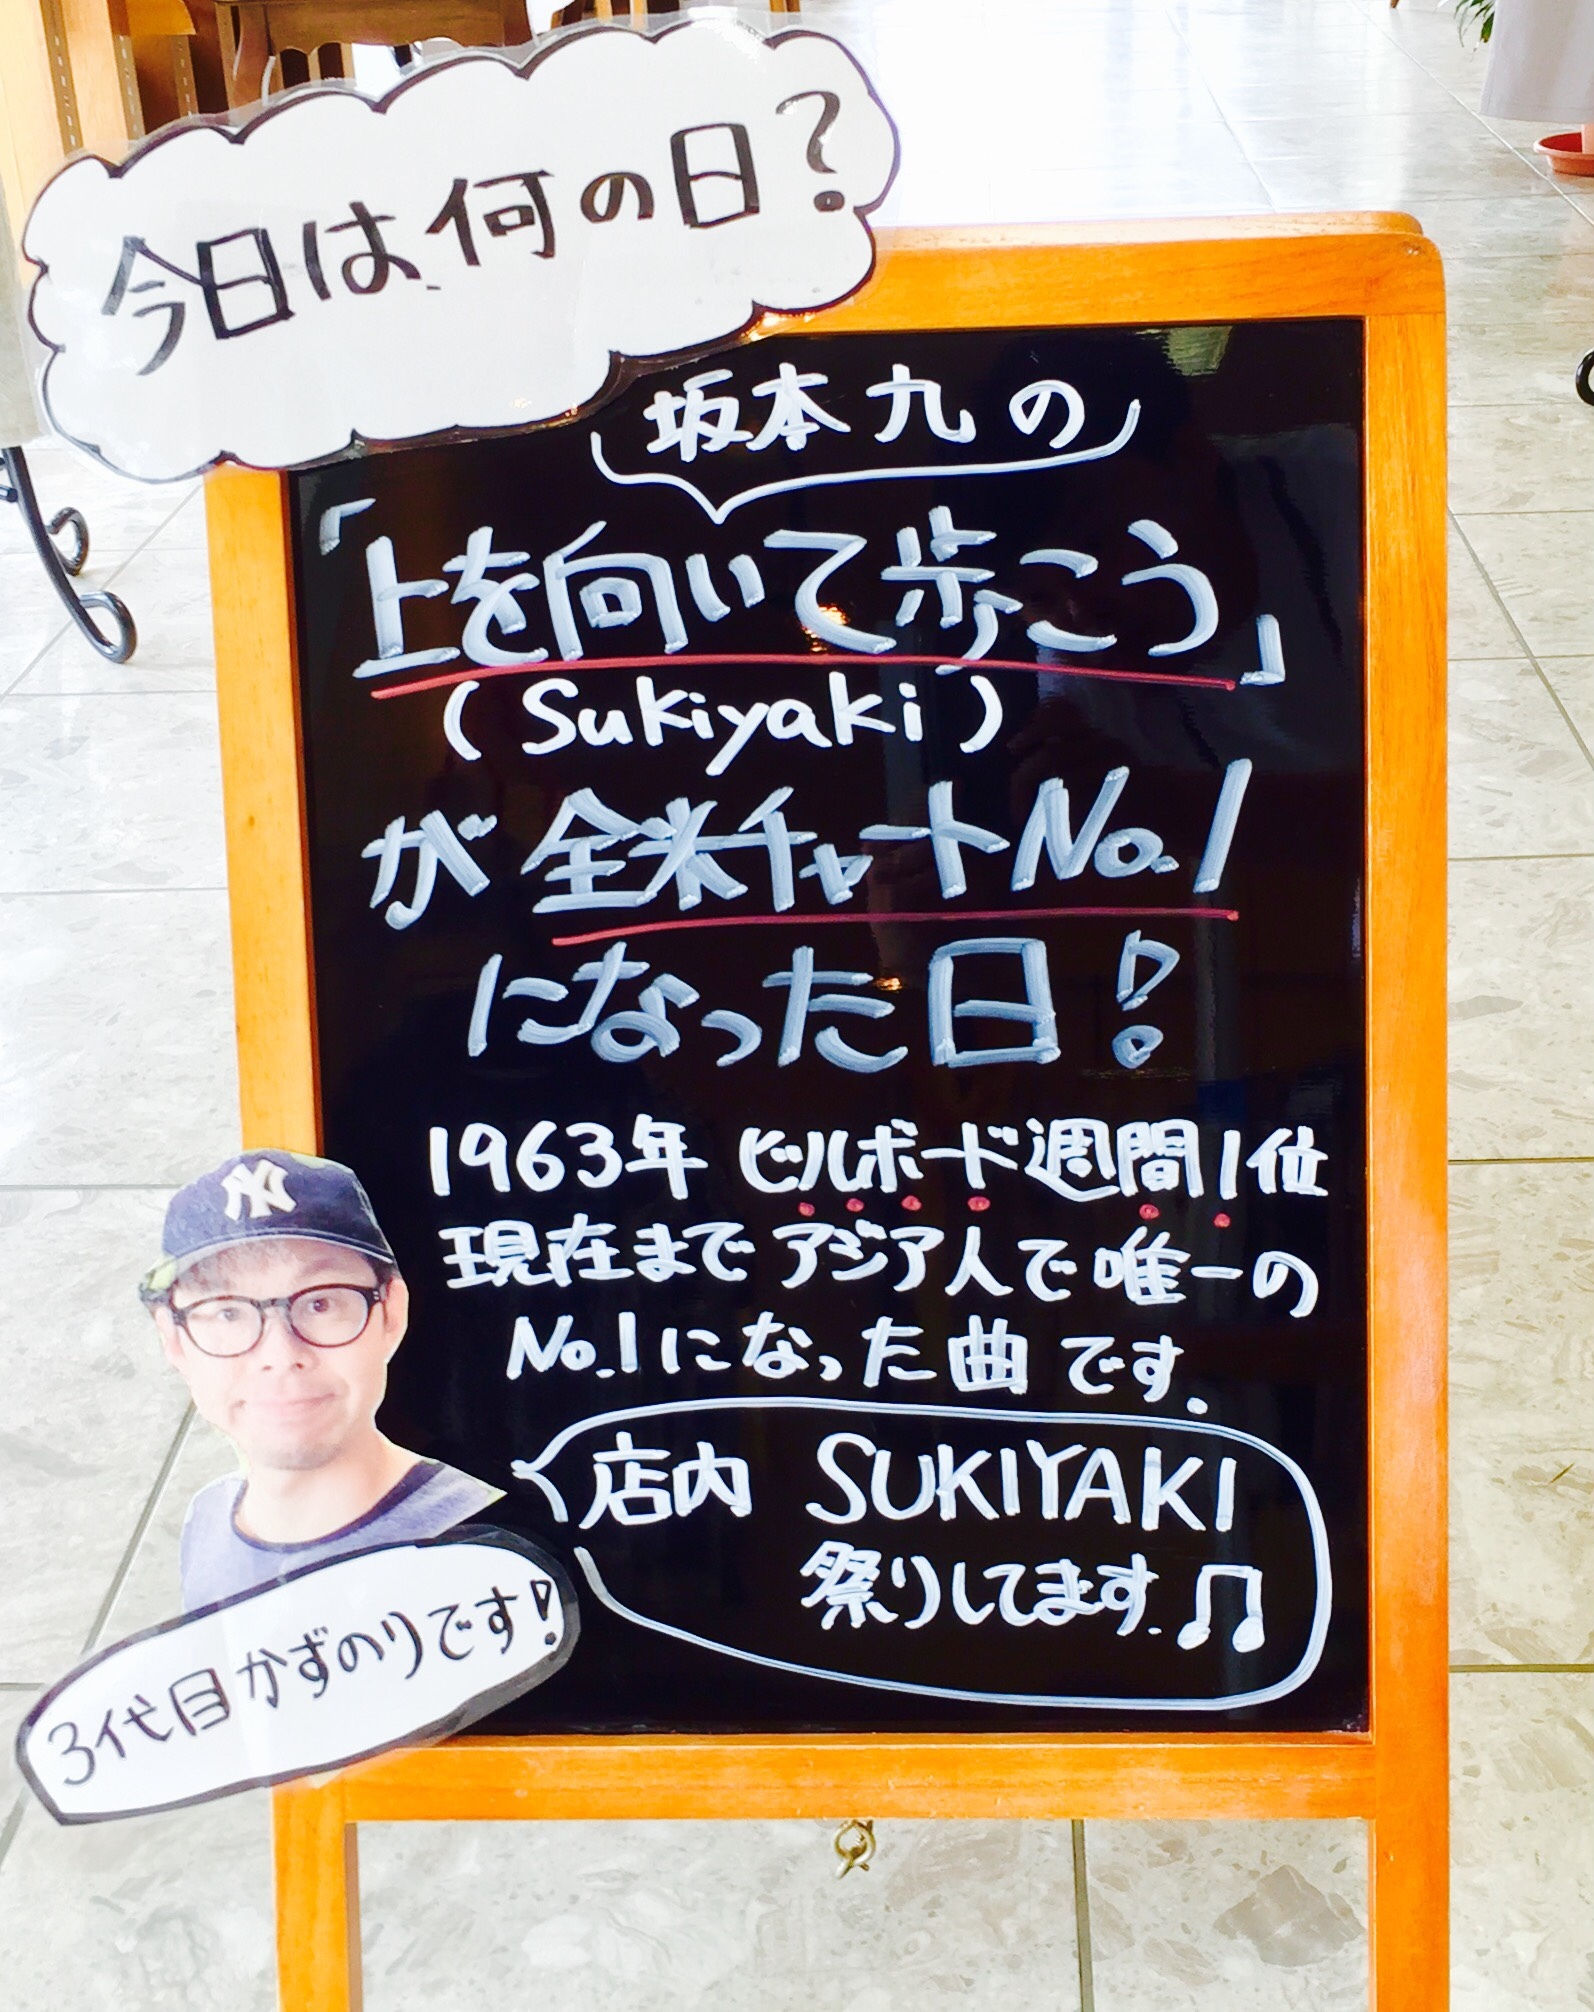 今日は何の日?
坂本九の
「上を向いて歩こう」
(Sukiyaki)
が全米チャートNo.1
になった日!
1963年 ビルボード週間1位
現在までアジア人で唯一の
No.1になった曲です.
店内 SUKIYAKI
祭りしてます.♫
NY
3代目かずのりです!